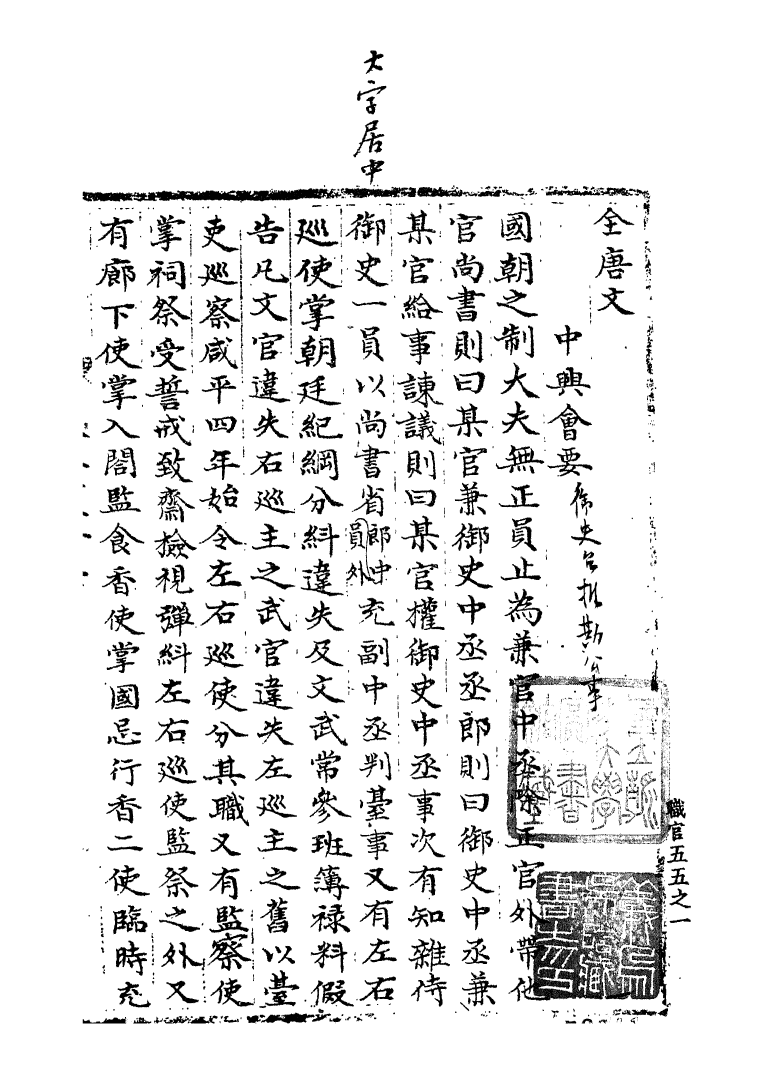 大字居中
全唐文
中興會要 御史台推勘公事
國朝之制大夫無正員止為兼官中丞除正官外帶他
官尚書則曰某官兼御史中丞丞郎則曰御史中丞兼
某官給事諫議則曰某官權御史中丞事次有知雜侍
御史一員以尚書省郎中員外充副中丞判臺事又有左右
巡使掌朝廷紀綱分糾違失及文武常參班簿祿料假
告凡文官違失右巡主之武官違失左巡主之舊以臺
吏巡察咸平四年始令左右巡使分其職又有監察使
掌祠祭受誓戒致齋檢視彈糾左右巡使監祭之外又
有廊下使掌入閤監食香使掌國忌行香二使臨時充
職官五五之一